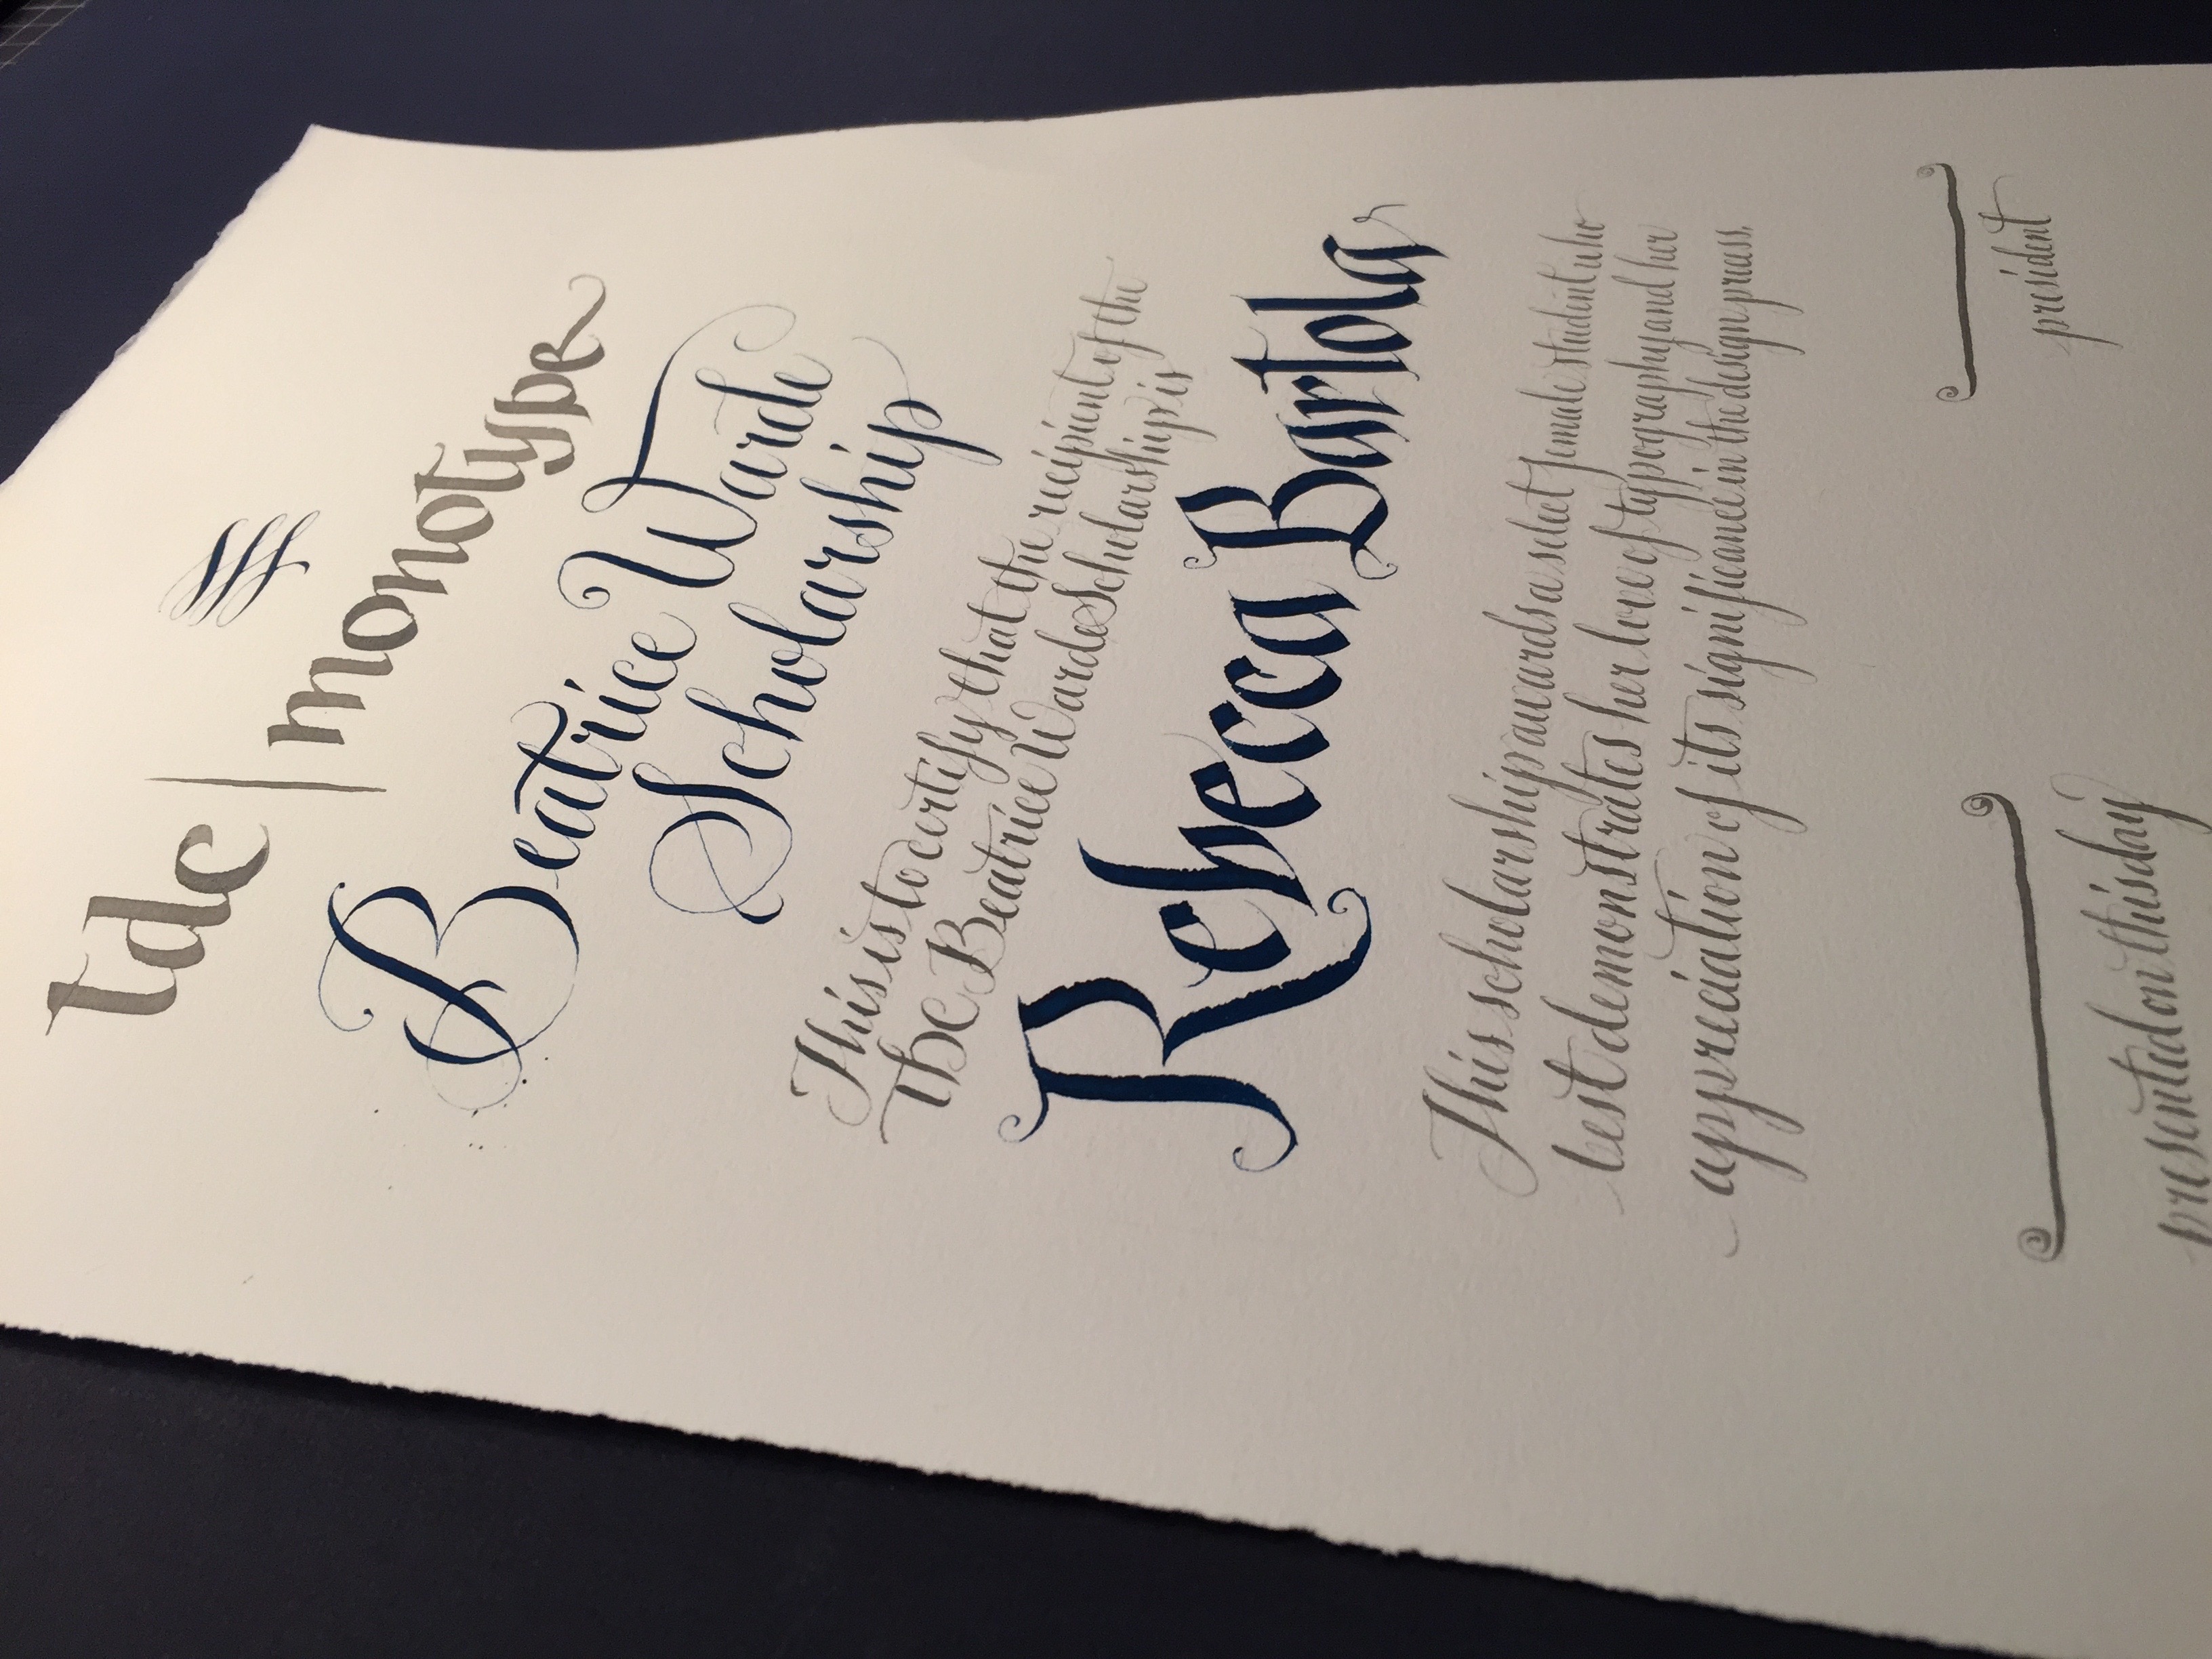 tdc | monotype
Beatrice Warde
Scholarship
This is to certify that the recipient of the
The Beatrice Warde Scholarship is
Rebecca Bartola
This scholarship awards a select female student who
best demonstrates her love of typography and her
appreciation of its significance in the design press.
president
presented on this day